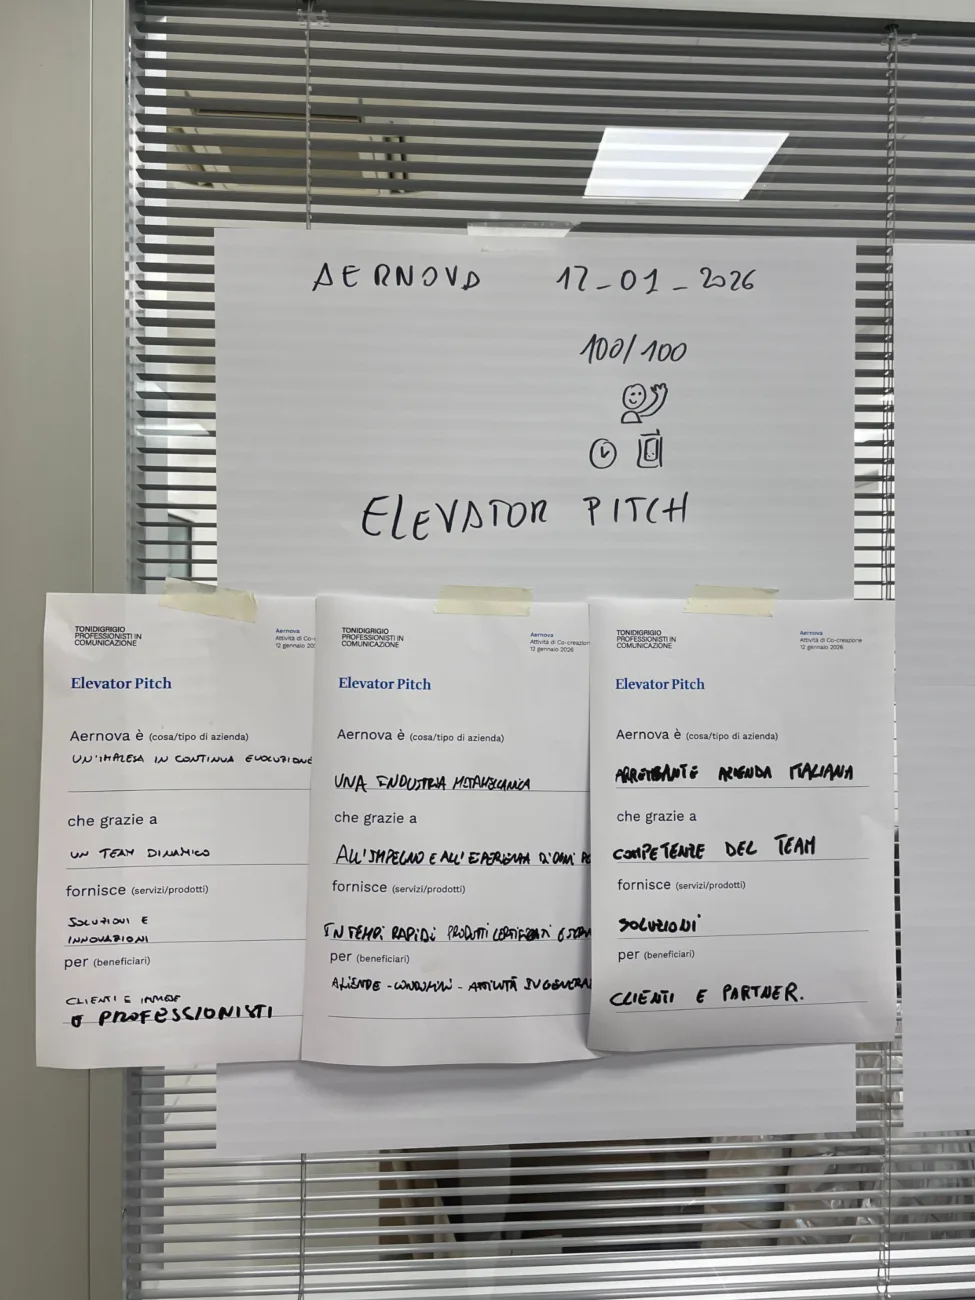 AERNOVA 12-01-2026
100/100
ELEVATOR PITCH
TONIDIGRIGIO
PROFESSIONISTI IN
COMUNICAZIONE
Aernova
Attività di Co-c
12 gennaio 20
Elevator Pitch
Aernova è (cosa/tipo di azienda)
UN'IMPRESA IN CONTINUA EVOLUZIONE
che grazie a
UN TEAM DINAMICO
fornisce (servizi/prodotti)
SOLUZIONI E
INNOVAZIONI
per (beneficiari)
CLIENTI E
PROFESSIONISTI
TONIDIGRIGIO
PROFESSIONISTI IN
COMUNICAZIONE
Aernova
Attività di Co-creazion
12 gennaio 2026
Elevator Pitch
Aernova è (cosa/tipo di azienda)
UNA INDUSTRIA METALMECCANICA
che grazie a
ALL'IMPEGNO E ALL'ESPERIENZA D'OGNI
fornisce (servizi/prodotti)
IN TEMPI RAPIDI PRODOTTI CERTIFICATI E
per (beneficiari)
AZIENDE - CONDOMINI - ATTIVITÀ IN GENERA
TONIDIGRIGIO
PROFESSIONISTI IN
COMUNICAZIONE
Aernova
Attività di Co-creazione
12 gennaio 2026
Elevator Pitch
Aernova è (cosa/tipo di azienda)
AZIENDA ITALIANA
che grazie a
COMPETENZE DEL TEAM
fornisce (servizi/prodotti)
SOLUZIONI
per (beneficiari)
CLIENTI E PARTNER.